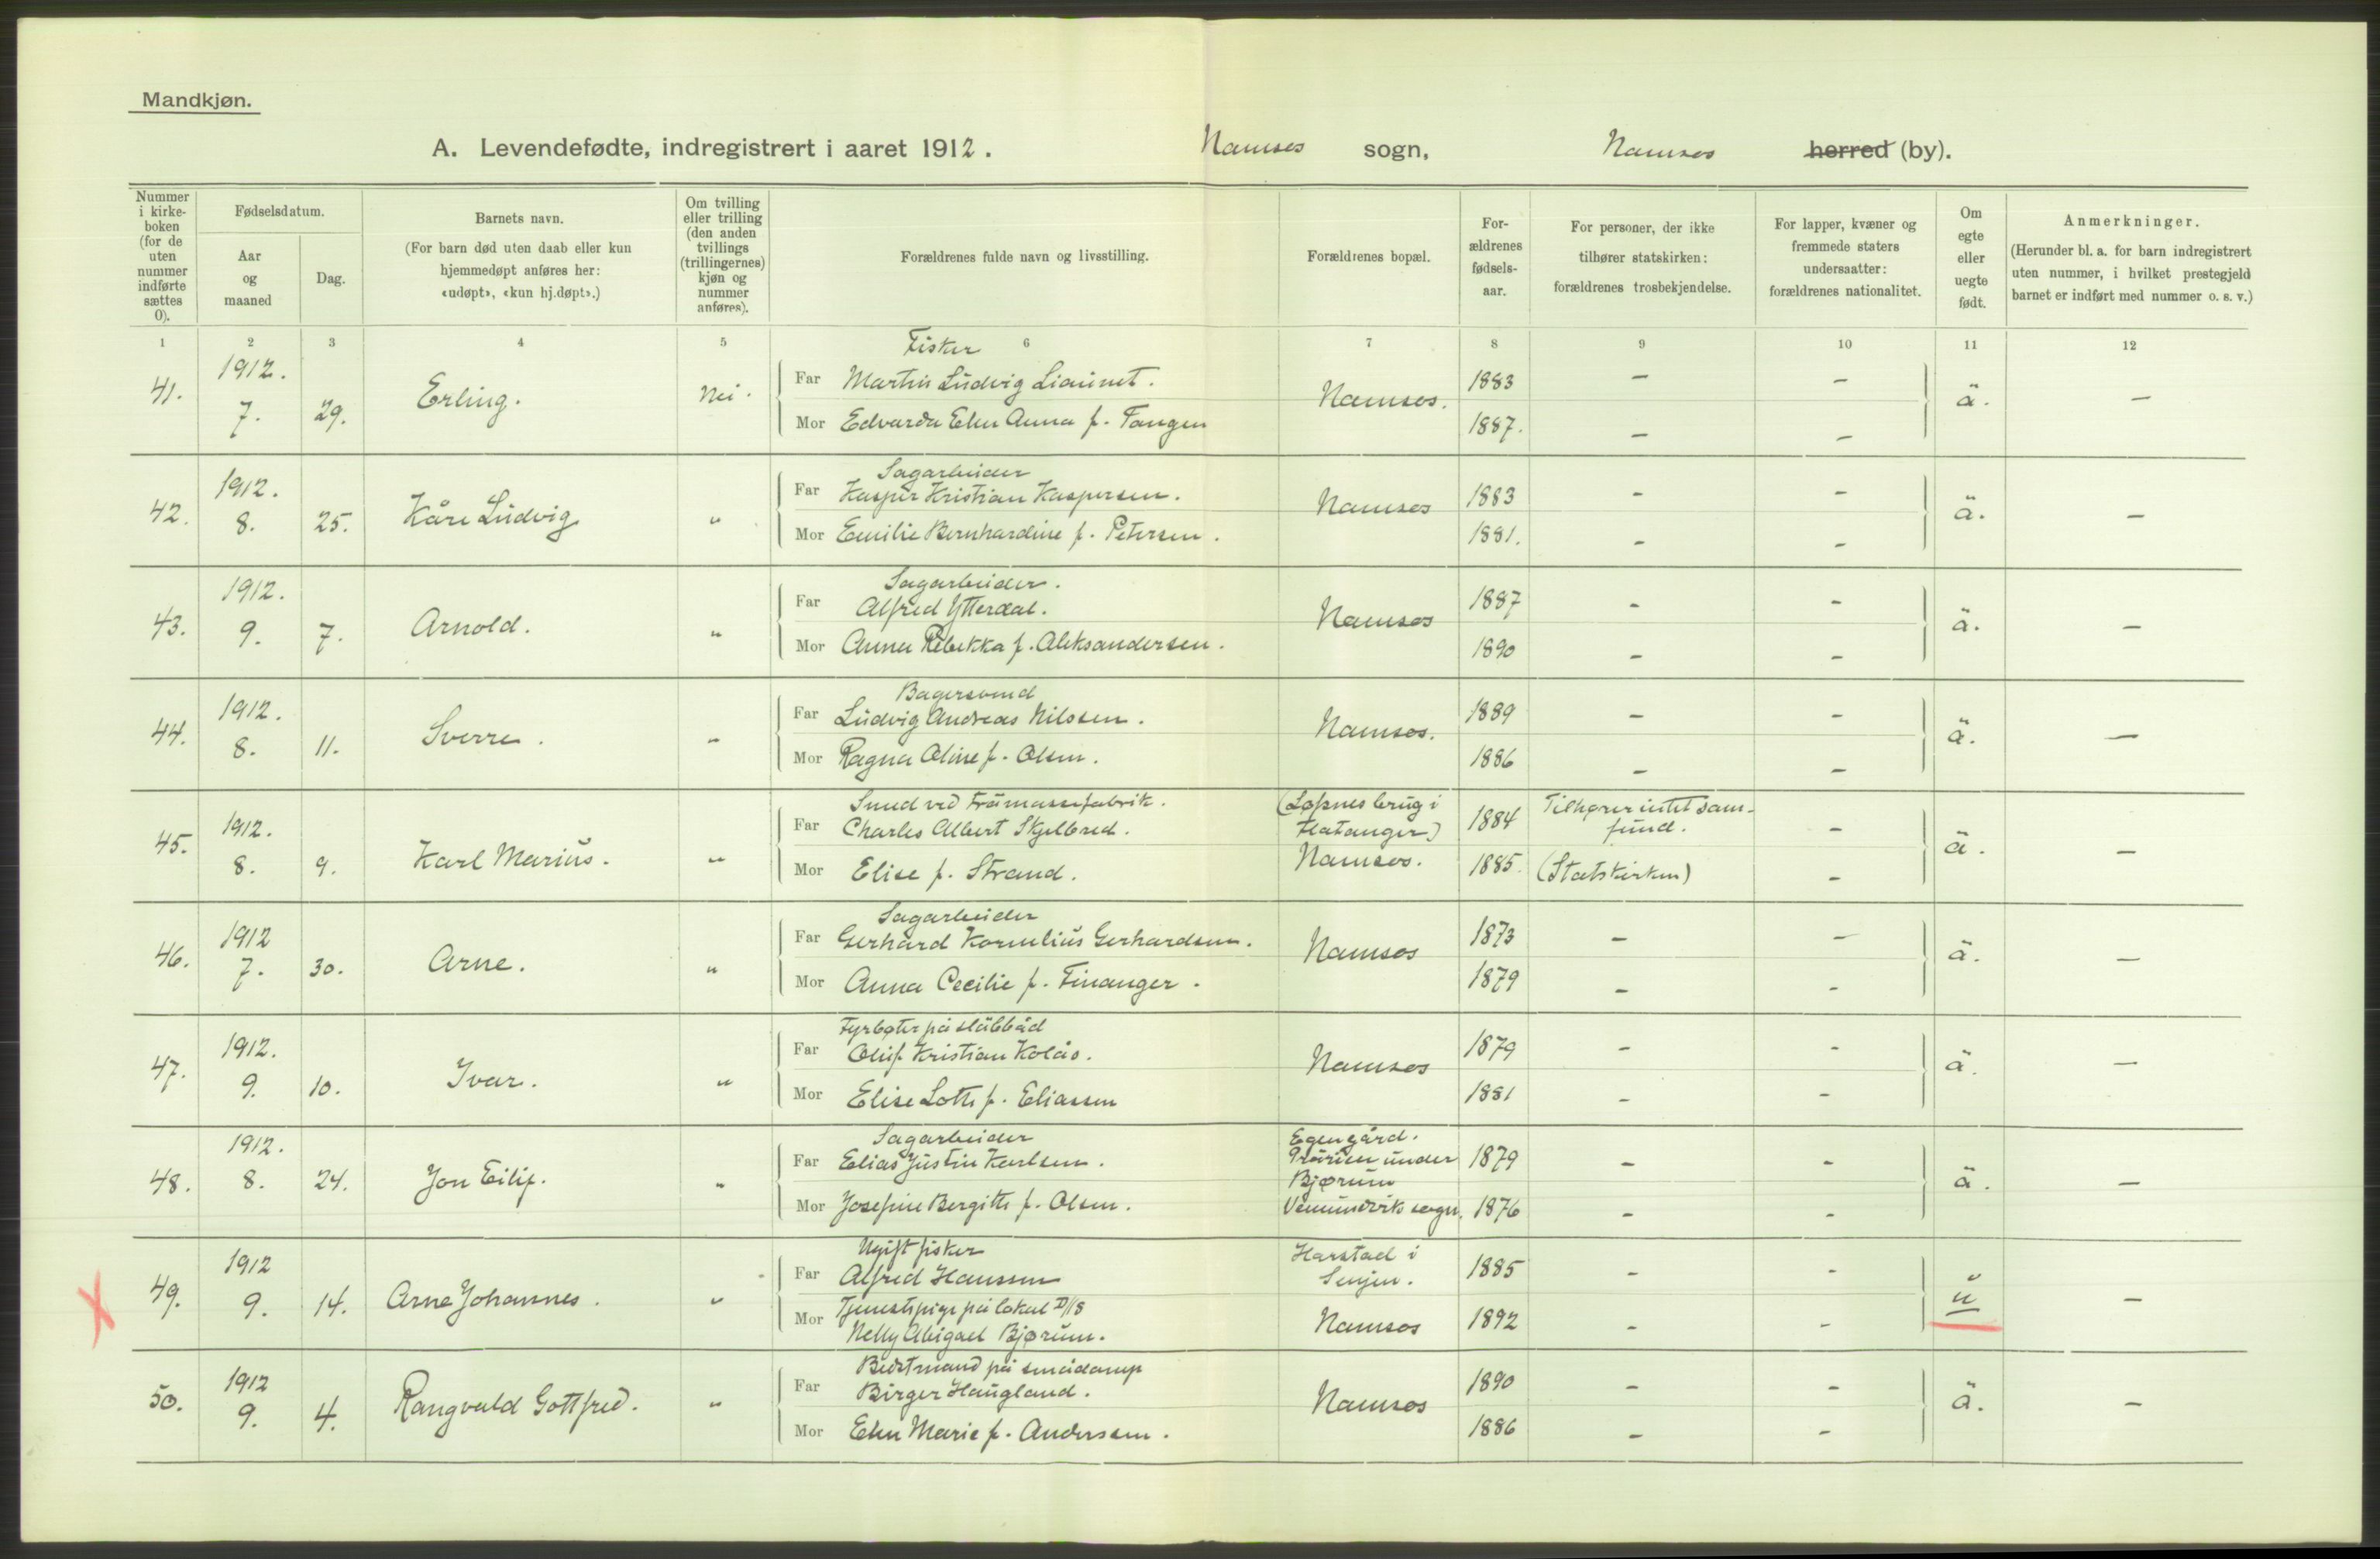 Mandkjøn.
A. Levendefødte, indregistrert i aaret 1912. Namsos sogn, Namsos herred (by).
Nummer i kirkeboken (for de uten nummer indførte sættes 0).
Fødselsdatum.
Aar og maaned
Dag.
Barnets navn.
(For barn død uten daab eller kun hjemmedøpt anføres her: «udøpt», «kun hj.døpt».)
Om tvilling eller trilling (den anden tvillings (trillingernes) kjøn og nummer anføres).
Forældrenes fulde navn og livsstilling.
Forældrenes bopæl.
For-ældrenes fødsels-aar.
For personer, der ikke tilhører statskirken: forældrenes trosbekjendelse.
For lapper, kvæner og fremmede staters undersaatter: forældrenes nationalitet.
Om egte eller uegte født.
Anmerkninger.
(Herunder bl. a. for barn indregistrert uten nummer, i hvilket prestegjeld barnet er indført med nummer o. s. v.)
1 2 3 4 5 6 7 8 9 10 11 12
Fisker
41. 1912. 7. 29. Erling. Nei. Far Martin Ludvig Liaunet. Namsos. 1883 - - ä. -
Mor Edvarda Elen Anna f. Tangen 1887. - -
Sagarbeider
42. 1912. 8. 25. Kåre Ludvig " Far Kasper Kristian Kaspersen. Namsos 1883 - - ä. -
Mor Emilie Bernhardine f. Petersen. 1881. - -
Sagarbeider.
43. 1912. 9. 7. Arnold. " Far Alfred Ytterdal. Namsos 1887 - - ä. -
Mor Anna Rebekka f. Aleksandersen. 1890 - -
Bagersvend
44. 1912. 8. 11. Sverre. " Far Ludvig Andreas Nilssen. Namsos. 1889 - - ä. -
Mor Ragna Oline f. Olsen. 1886 - -
Smed ved Træmassefabrik. (Lofsnes brug i
45. 1912. 8. 9. Karl Marius. " Far Charles Albert Skjelbred. Flatanger) 1884 Tilhører intet samfund. - ä. -
Mor Elise f. Strand. Namsos. 1885. (Statskirken) -
Sagarbeider
46. 1912 7. 30. Arne. " Far Gerhard Kornelius Gerhardsen. Namsos 1873 - - ä. -
Mor Anna Cecilie f. Finanger. 1879 - -
Fyrbøter på slæbbåd
47. 1912. 9. 10. Ivar. " Far Oluf Kristian Kolås. Namsos 1879 - - ä. -
Mor Elise Lotte f. Eliassen 1881 - -
Sagarbeider Egen gård.
48. 1912. 8. 24. Jon Eilif. " Far Elias Justin Karlsen. Prærien under Bjørum 1879 - - ä. -
Mor Josefine Bergitte f. Olsen. Vemundvik sogn. 1876 - -
Ugift fisker Harstad i
49. 1912 9. 14. Arne Johannes. " Far Alfred Hanssen Senjen. 1885 - - u -
Mor Tjenestepige på lokal D/S
Nelly Abigael Bjørum. Namsos 1892 - -
Bedstmand på smådamp
50. 1912 9. 4. Rangvald Gottfred. " Far Birger Haugland. Namsos 1890 - - ä. -
Mor Elen Marie f. Andersen. 1886 - -